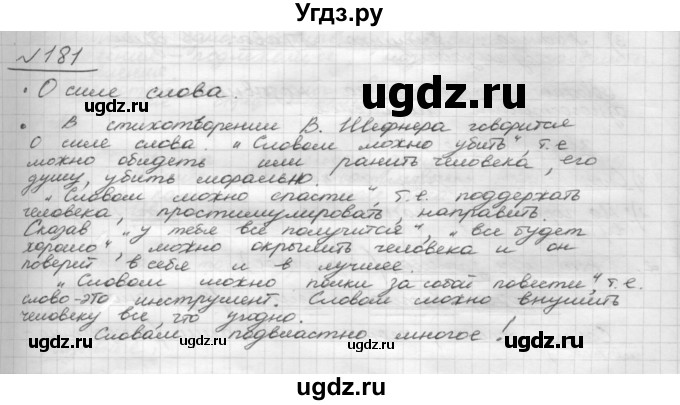 Угдз.ру
№181
• О силе слова.
• В стихотворении В. Шефнера говорится
о силе слова. „Словом можно убить", т.е
можно обидеть или ранить человека, его
душу, убить морально.
„Словом можно спасти", т.е. поддержать
человека, простимулировать, направить.
Сказав „у тебя все получится", „все будет
хорошо", можно окрылить человека и он
поверит в себя и в лучшее.
„Словом можно полки за собой повести", т.е.
слово-это инструмент. Словом можно внушить
человеку все что угодно.
Словам подвластно многое!
ugdz.ru
ugdz.ru
ugdz.ru
ugdz.ru
ugdz.ru
ugdz.ru
ugdz.ru
ugdz.ru
ugdz.ru
ugdz.ru